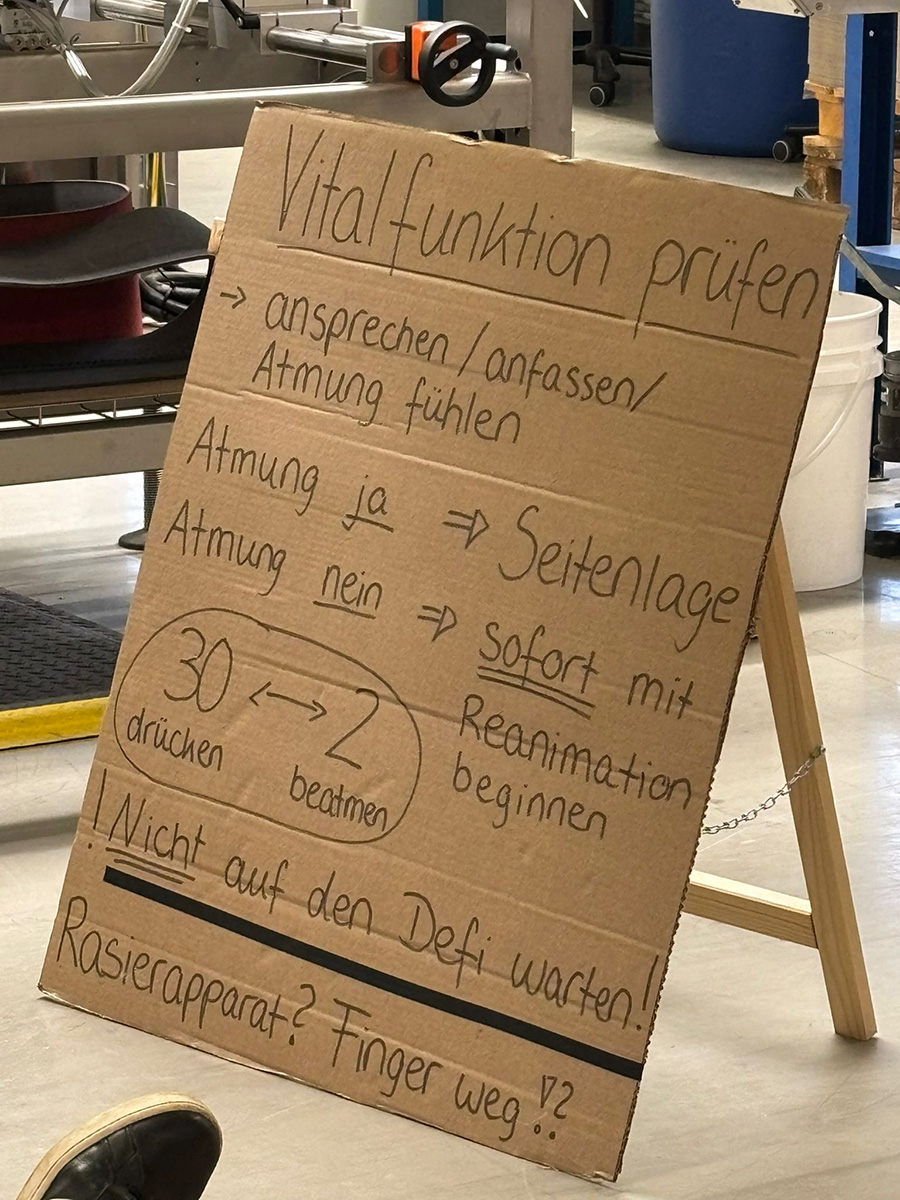 Vitalfunktion prüfen
→ ansprechen / anfassen /
Atmung fühlen
Atmung ja ⇒ Seitenlage
Atmung nein ⇒ sofort mit
Reanimation
beginnen
30 ↔ 2
drücken
beatmen
! Nicht auf den Defi warten!
Rasierapparat? Finger weg !?